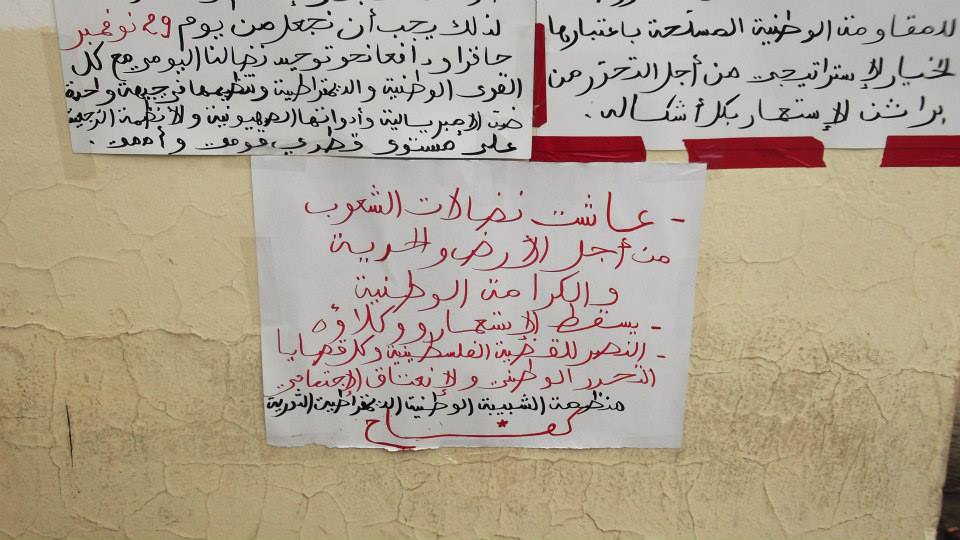 للمقاومة الوطنية المسلحة باعتبارها
الخيار الإستراتيجي من أجل التحرر من
براثن الإستعمار بكل أشكاله.
لذلك يجب أن نجعل من يوم 29 نوفمبر
حافزا ودافعا نحو توحيد نضالنا اليومي مع كل
القوى الوطنية والديمقراطية وتنظيمها في جبهة واحدة
ضد الإمبريالية وأدواتها الصهيونية والأنظمة الرجعية
على مستوى قطري قومي و أممي.
- عاشت نضالات الشعوب
من أجل الأرض والحرية
والكرامة الوطنية
- يسقط الإستعمار ووكلاؤه
- النصر للقضية الفلسطينية وكل قضايا
التحرر الوطني والإنعتاق الإجتماعي
منظمة الشبيبة الوطنية الديمقراطية الثورية
كفاح